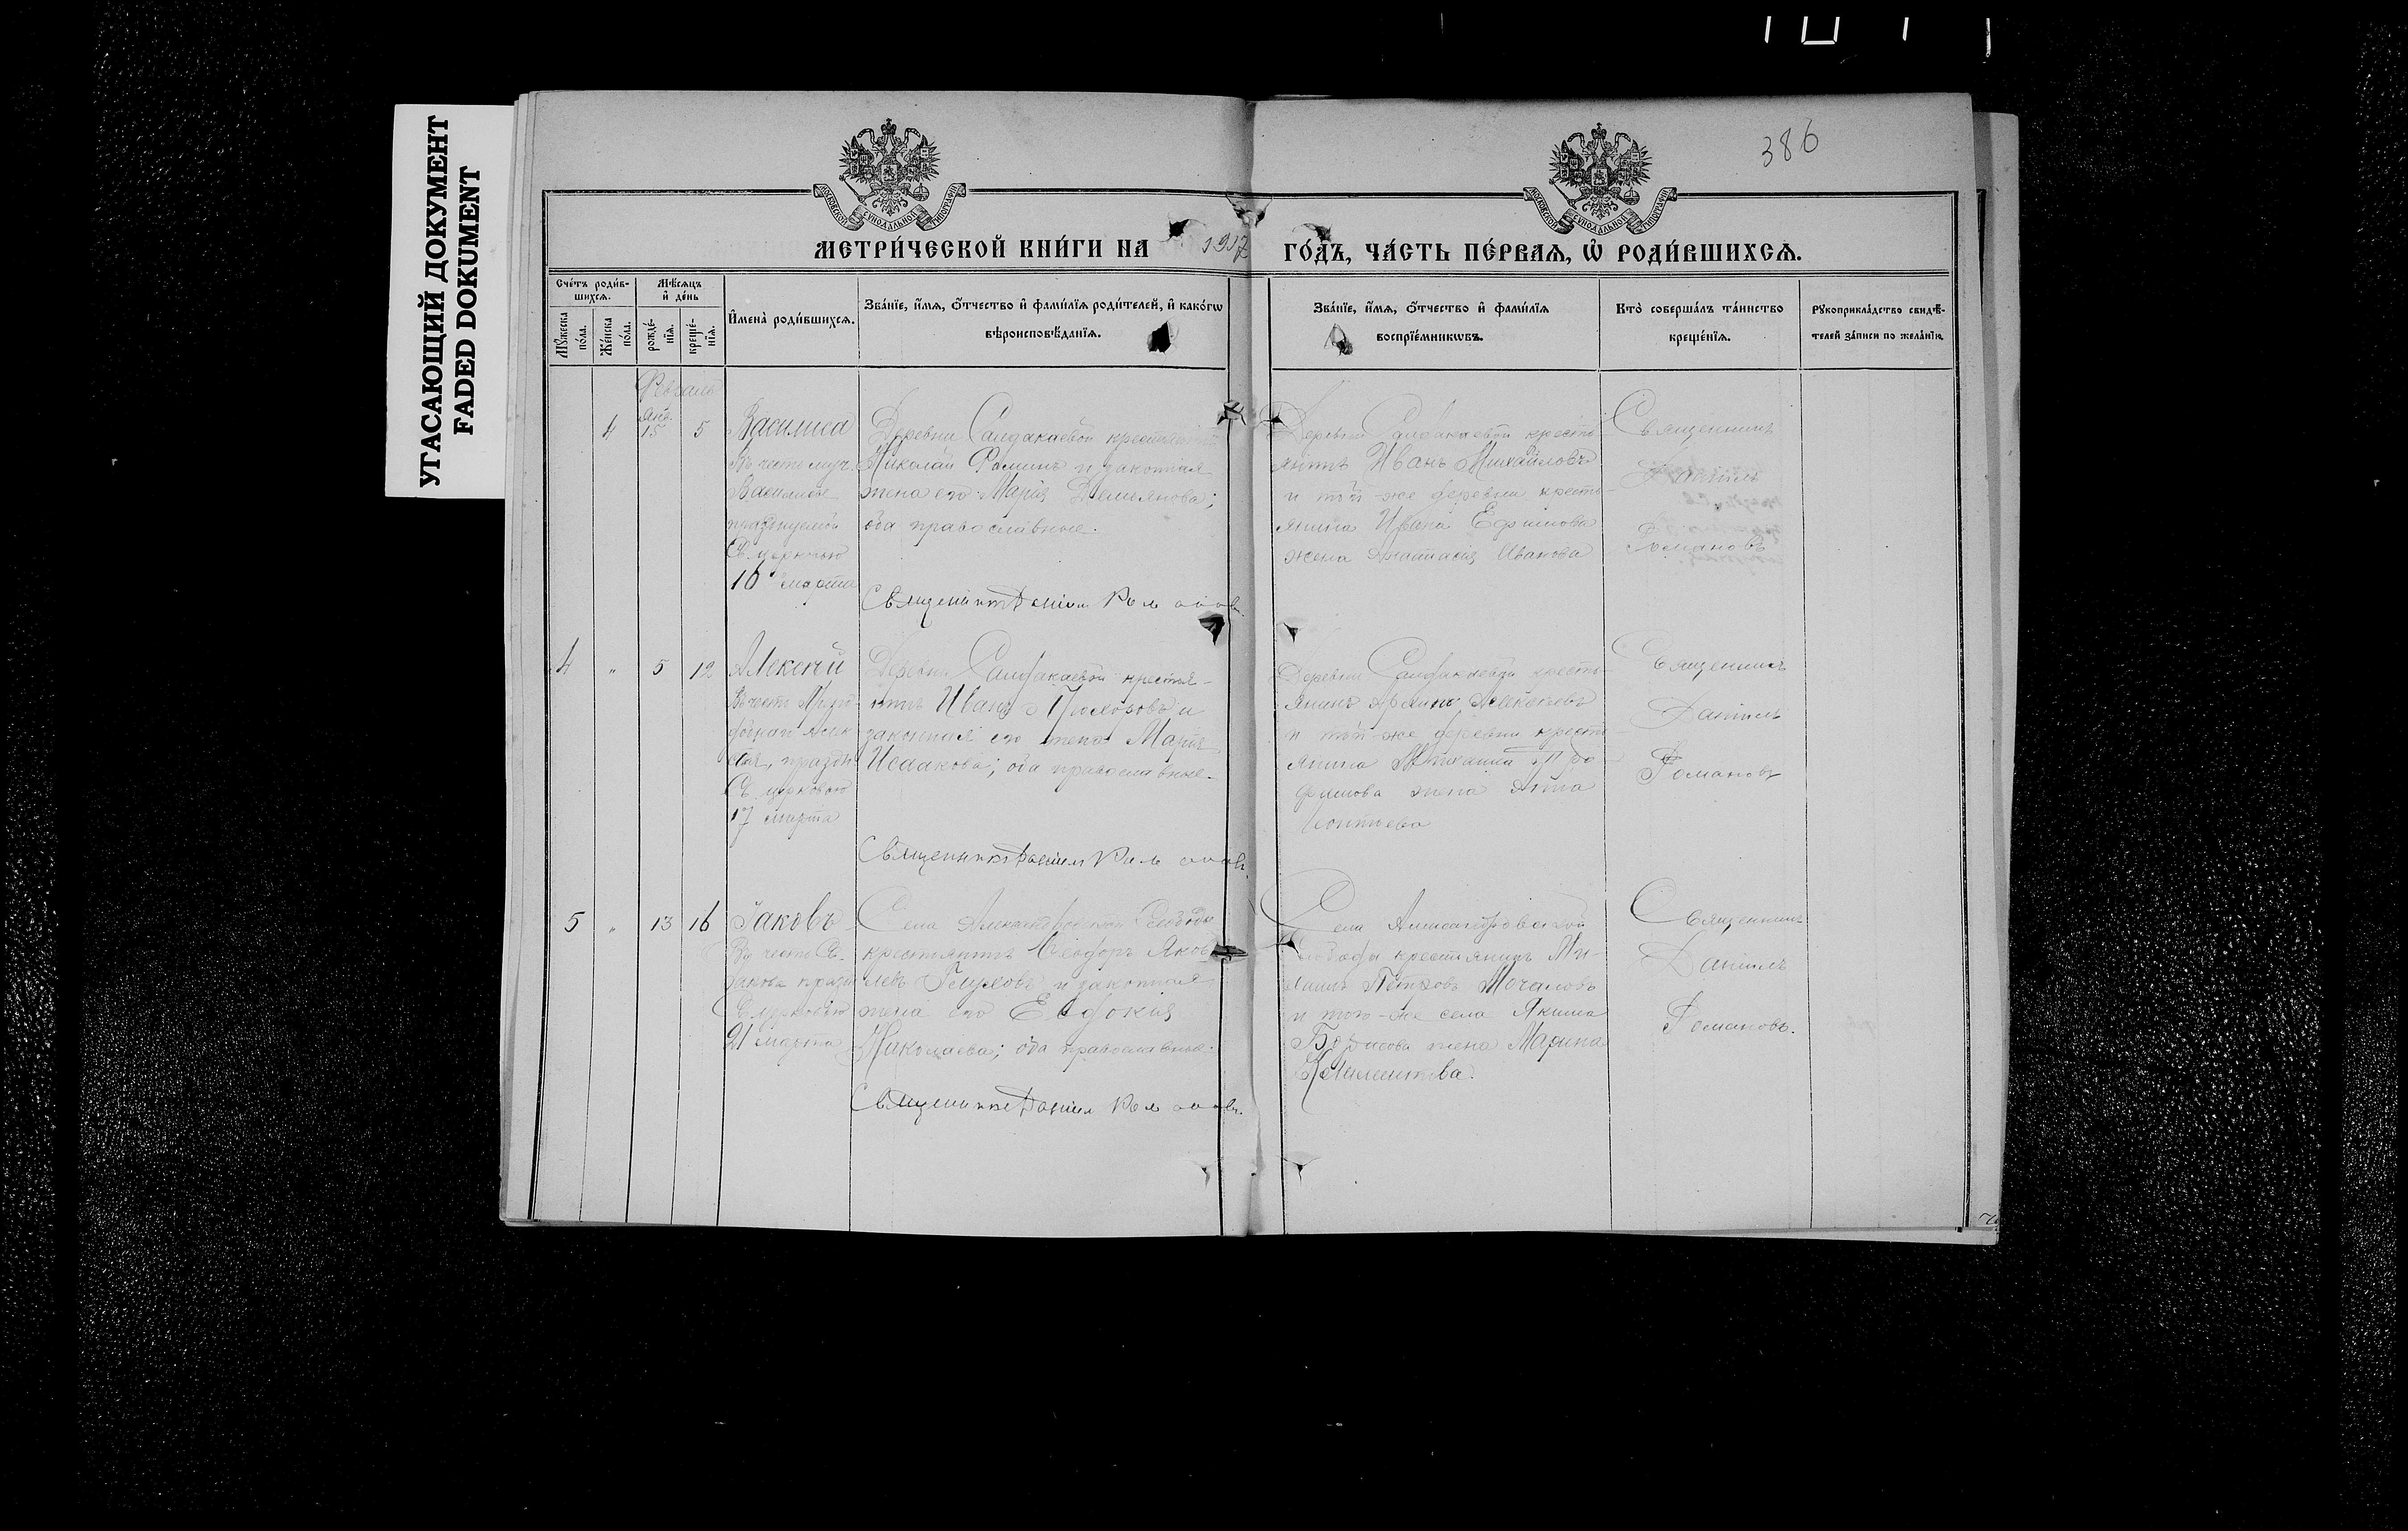 УГАСАЮЩИЙ ДОКУМЕНТ
FADED DOKUMENT
386
МОСКОВСКОЙ СУНОДАЛЬНОЙ ТИПОГРАФІИ
МОСКОВСКОЙ СУНОДАЛЬНОЙ ТИПОГРАФІИ
МЕТРИ́ЧЕСКОЙ КНИ́ГИ НА 1917 ГО́ДЪ, ЧА́СТЬ ПЕ́РВАЯ, Ѡ҆ РОДИ́ВШИХСЯ.
Сче́тъ роди́в-
шихся.
Мꙋ́жеска
по́ла.
Же́нска
по́ла.
Мѣ́сяцъ
и҆ де́нь
рожде́-
нїя.
креще́-
нїя.
И҆мена̀ роди́вшихся.
Зва́нїе, и҆́мя, ѻ҆́тчество и҆ фами́лїя роди́телей, и҆ како́гѡ
вѣроисповѣ́данїя.
Зва́нїе, и҆́мя, ѻ҆́тчество и҆ фами́лїя
воспрїе́мникѡвъ.
Кто̀ соверша́лъ та́инство
креще́нїя.
Рꙋкоприкла́дство свидѣ́-
телей за́писи по жела́нїю.
Февраль
4
Янв.
15
5
Василиса
Въ честь муч.
Василисы
празднуемой
Св. церковью
16 марта
Деревни Салдакаевой крестьянинъ
Николай Фоминъ и законная
жена его Марія Демьянова;
оба православные.
Священникъ Даніил Романовъ.
Деревни Салдакаевой кресть-
янинъ Иванъ Михайловъ
и той-же деревни кресть-
янина Ивана Ефимова
жена Анастасія Иванова
Священникъ
Даніилъ
Романовъ
4 " 5 12
Алексѣй
Въ честь
17 марта
Деревни Салдакаевой крестья-
нинъ Иванъ и
законная его жена Марія
Исаакова; оба православные.
Священникъ Даніил Романовъ.
Деревни Салдакаевой кресть-
янинъ Алексѣевъ
и той-же деревни кресть-
янина
фимова жена Анна
Священникъ
Даніилъ
Романовъ
5 " 13 16
Іаковъ
Въ честь Св.
Іакова празд
Св. церковью
21 марта
Села Александровской Слободы
крестьянинъ Ѳеодоръ Яков-
левъ Глуховъ и законная
жена его Евдокія
Николаева; оба православные.
Священникъ Даніил Романовъ.
Села Александровской
Слободы крестьянинъ Ми-
хаилъ Петровъ Мочаловъ
и того-же села Якима
Борисова жена Марина
Климентьева.
Священникъ
Даніилъ
Романовъ.